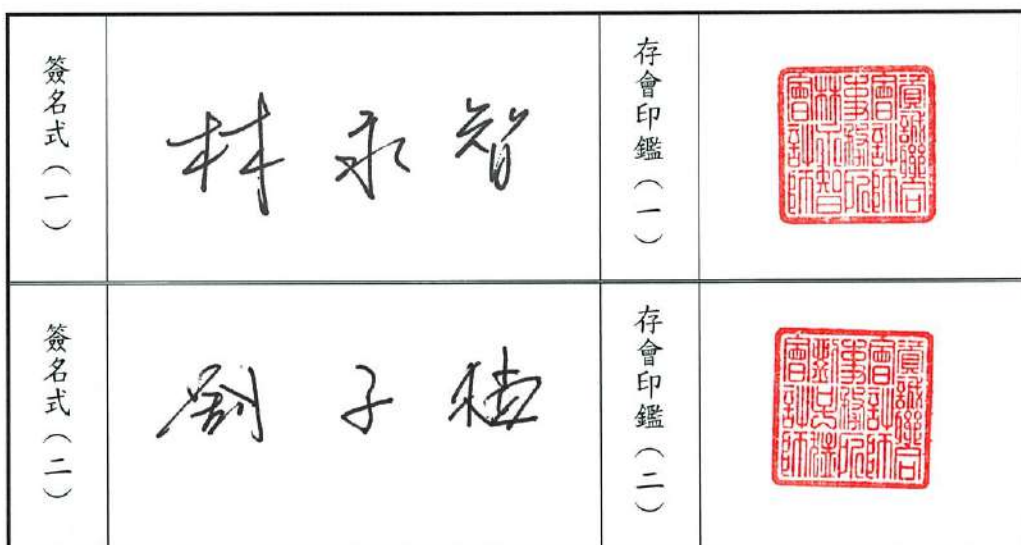 簽名式（一）
林永智
存會印鑑（一）
資誠聯合
會計師
事務所
林永智
會計師
簽名式（二）
劉子猛
存會印鑑（二）
資誠聯合
會計師
事務所
劉子猛
會計師